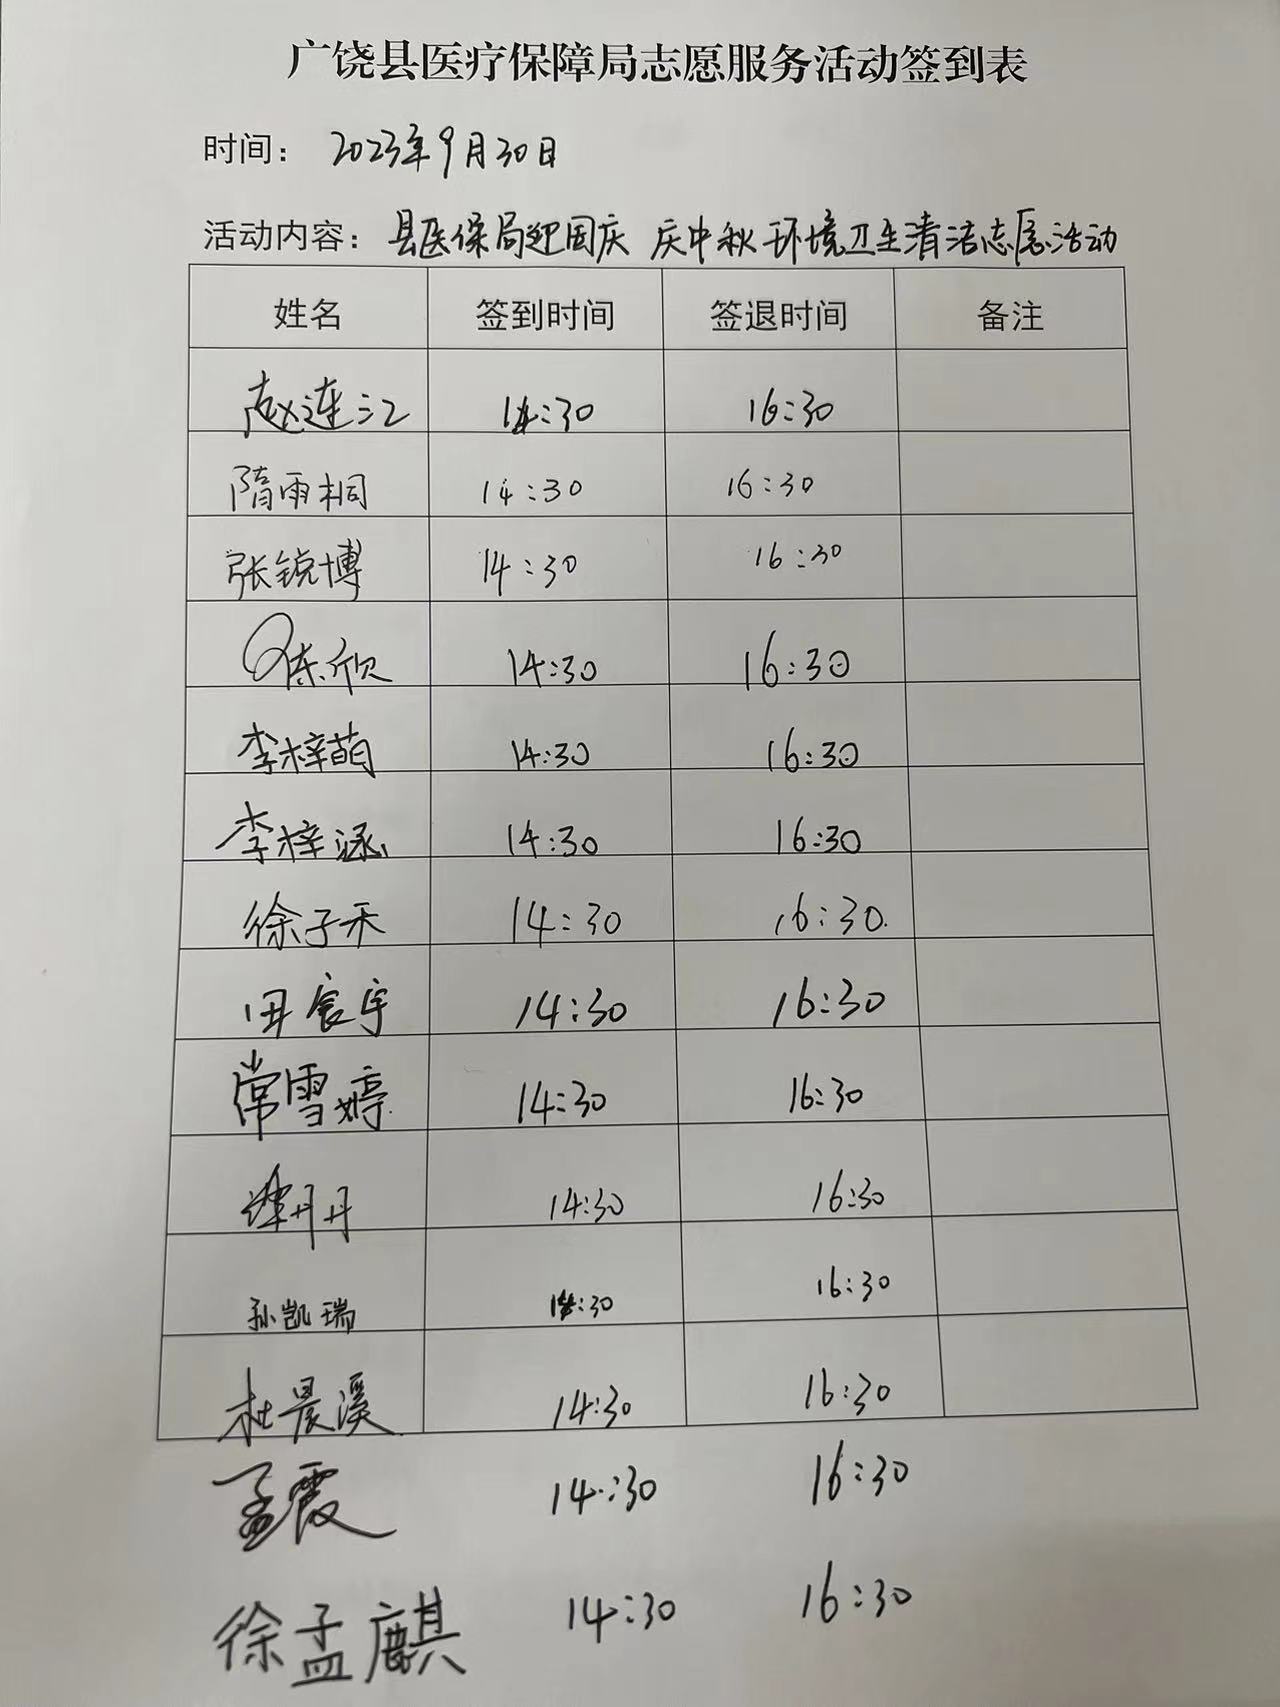 广饶县医疗保障局志愿服务活动签到表
时间： 2023年9月30日
活动内容：县医保局迎国庆 庆中秋环境卫生清洁志愿活动
姓名 签到时间 签退时间 备注
赵连江 14:30 16:30
隋雨桐 14:30 16:30
张锐博 14:30 16:30
陈欣 14:30 16:30
李梓萌 14:30 16:30
李梓涵 14:30 16:30
徐子禾 14:30 16:30
田宸宇 14:30 16:30
常雪婷 14:30 16:30
谭丹丹 14:30 16:30
孙凯瑞 14:30 16:30
杜晨溪 14:30 16:30
孟霞 14:30 16:30
徐孟麒 14:30 16:30